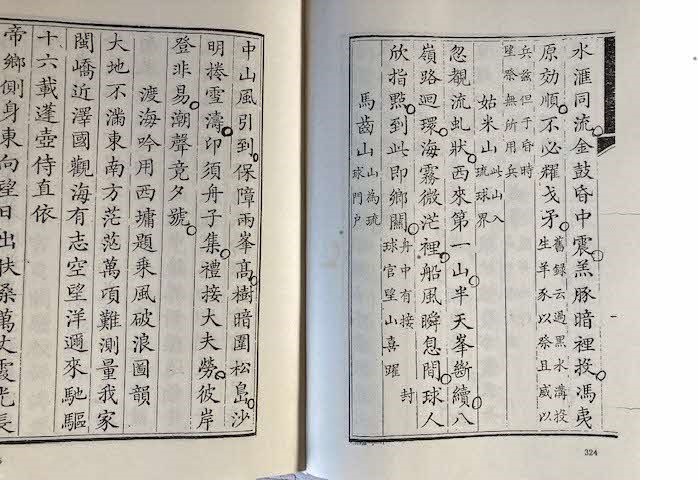 水滙同流金鼓昏中震羔豚暗裡投馮夷
原効順不必耀戈矛
舊錄云過黑水溝投
生羊豕以祭且威以
兵茲但于昏時
望祭無所用兵
姑米山
此山入
琉球界
忽覩流虬狀西來第一山半天峯斷續八
嶺路迴環海霧微茫裡船風瞬息間球人
欣指點到此即鄉關
舟中有接封
球官望山喜躍
馬齒山
山為琉
球門户
324
中山風引到保障兩峯高樹暗圍松島沙
明捲雪濤印須舟子集禮接大夫勞彼岸
登非易潮聲竞夕號
渡海吟用西墉題乘風破浪圖韻
大地不滿東南方茫茫萬項難測量我家
閩嶠近澤國觀海有志空望洋邇來馳驅
十六載蓬壺侍直依
帝鄉側身東向望日出扶桑萬丈霞光長